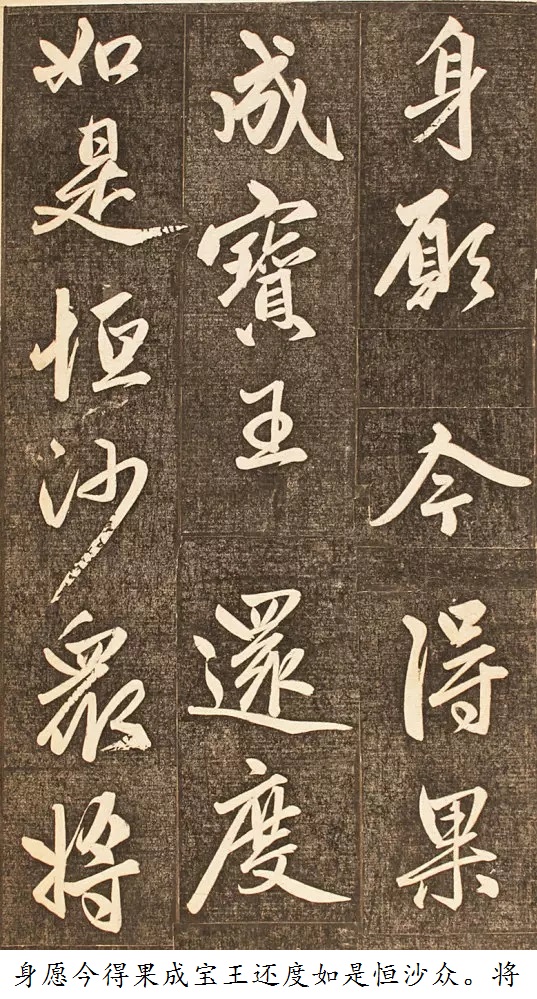 身願今得果
成寶王還度
如是恒沙衆将
身愿今得果成宝王还度如是恒沙众。将